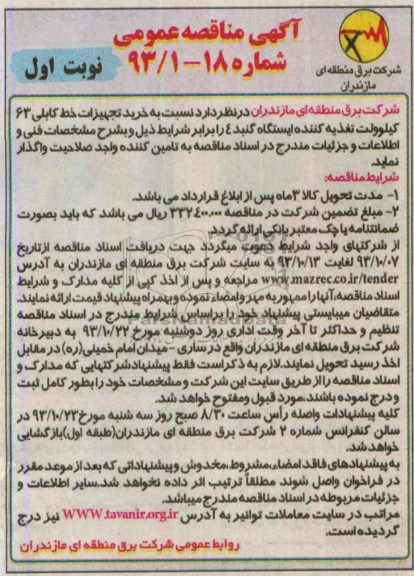 آگهی مناقصه عمومی
شماره ۱۸-۹۳/۱
نوبت اول
شرکت برق منطقه ای
مازندران
شرکت برق منطقه ای مازندران درنظر دارد نسبت به خرید تجهیزات خط کابلی ۶۳
کیلوولت تغذیه کننده ایستگاه گنبد ٤ را برابر شرایط ذیل و بشرح مشخصات فنی و
اطلاعات و جزئیات مندرج در اسناد مناقصه به تامین کننده واجد صلاحیت واگذار
نماید.
شرایط مناقصه:
۱- مدت تحویل کالا ۳ماه پس از ابلاغ قرارداد می باشد.
۲- مبلغ تضمین شرکت در مناقصه ۳۳۲٤۰۰,۰۰۰ ریال می باشد که باید بصورت
ضمانتنامه یا چک معتبر بانکی ارائه گردد.
از شرکتهای واجد شرایط دعوت میگردد جهت دریافت اسناد مناقصه ازتاریخ
۹۳/۱۰/۰۷ لغایت ۹۳/۱۰/۱۳ به سایت شرکت برق منطقه ای مازندران به آدرس
www.mazrec.co.ir/tender مراجعه و پس از اخذ کپی از کلیه مدارک و شرایط
اسناد مناقصه، آنها را ممهور به مهر و امضاء نموده و بهمراه پیشنهاد قیمت ارائه نمایند.
متقاضیان میبایستی پیشنهاد خود را براساس شرایط مندرج در اسناد مناقصه
تنظیم و حداکثر تا آخر وقت اداری روز دوشنبه مورخ ۹۳/۱۰/۲۲ به دبیرخانه
شرکت برق منطقه ای مازندران واقع در ساری - میدان امام خمینی(ره) در مقابل
اخذ رسید تحویل نمایند.لازم به ذکر است فقط پیشنهاد شرکتهایی که مدارک و
اسناد مناقصه را از طریق سایت این شرکت و مشخصات خود را بطور کامل ثبت
و درج نموده باشند،مورد قبول ومفتوح خواهد شد.
کلیه پیشنهادات واصله رأس ساعت ۸/۳۰ صبح روز سه شنبه مورخ۹۳/۱۰/۲۳ در
سالن کنفرانس شماره ۲ شرکت برق منطقه ای مازندران(طبقه اول)بازگشایی
خواهد شد.
به پیشنهادهای فاقد امضاء،مشروط،مخدوش و پیشنهاداتی که بعد از موعد مقرر
در فراخوان واصل شوند مطلقاً ترتیب اثر داده نخواهد شد.سایر اطلاعات و
جزئیات مربوطه در اسناد مناقصه مندرج میباشد.
مراتب در سایت معاملات توانیر به آدرس WWW.tavanir.org.ir نیز درج
گردیده است.
روابط عمومی شرکت برق منطقه ای مازندران